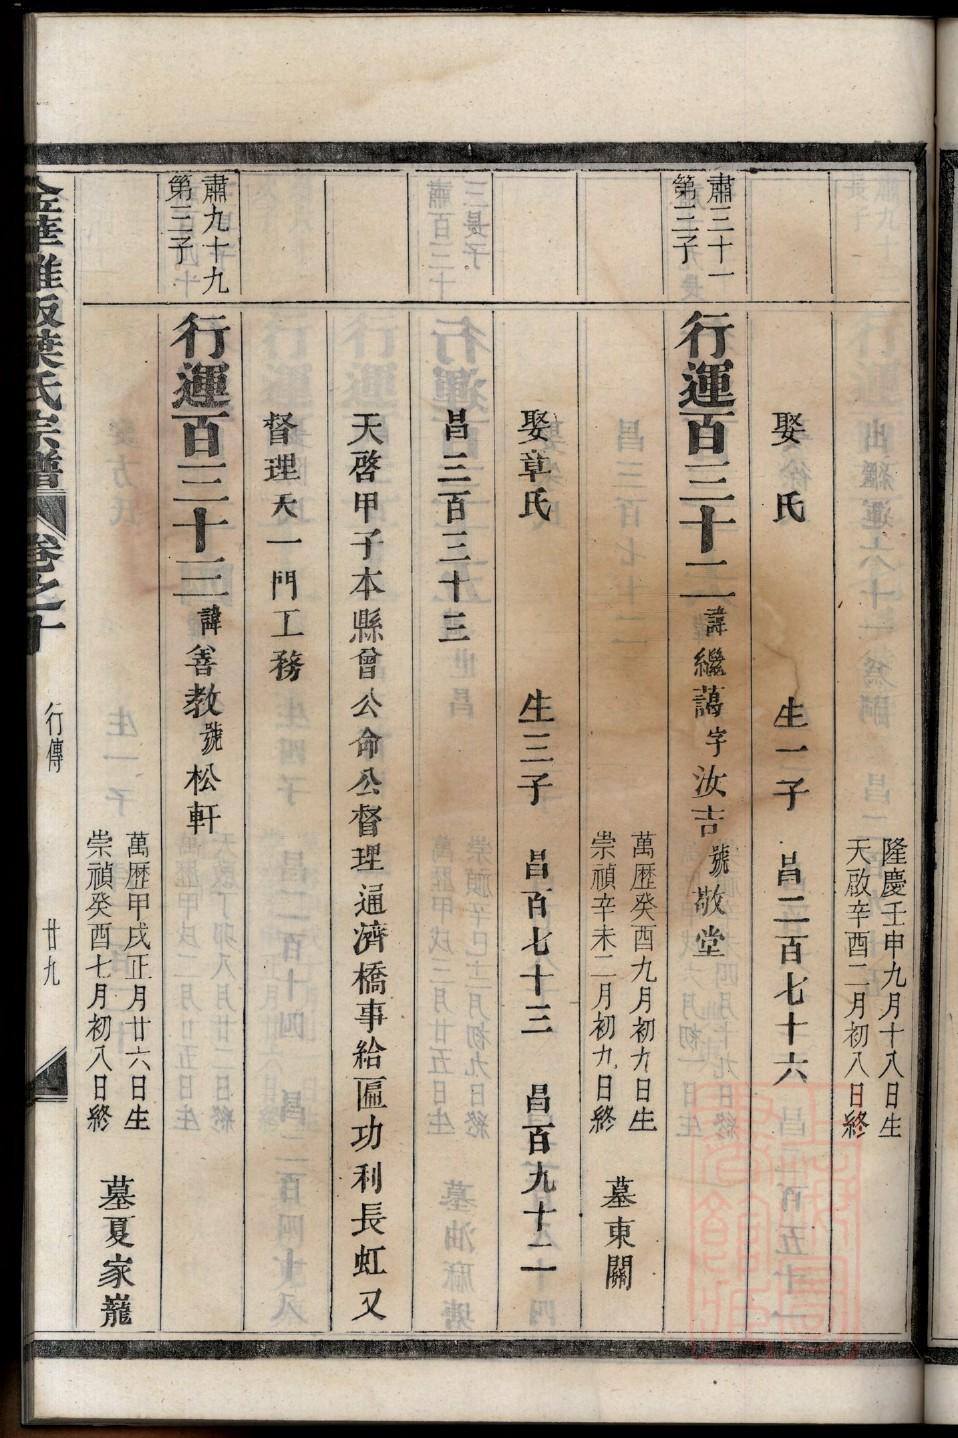 隆慶壬申九月十八日生
天啟辛酉二月初八日終
娶 氏 生一子 昌二百七十六
肅三十一
第三子
行運百三十二 諱繼藹 字汝吉 號敬堂
萬歷癸酉九月初九日生
崇禎辛未二月初九日終
墓東關
娶章氏 生三子 昌百七十三 昌百九十二
昌二百三十三
天啓甲子本縣曾公命公督理通濟橋事給匾功利長虹又
督理天一門工務
肅九十九
第三子
行運百三十三 諱善教 號松軒
萬歷甲戌正月廿六日生
崇禎癸酉七月初八日終
墓夏家巃
葉氏宗譜 卷之十 行傳 廿九